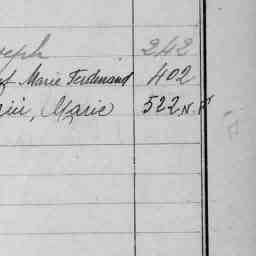 seph 242
f Marie Ferdinand 402
Marie 522 N.F